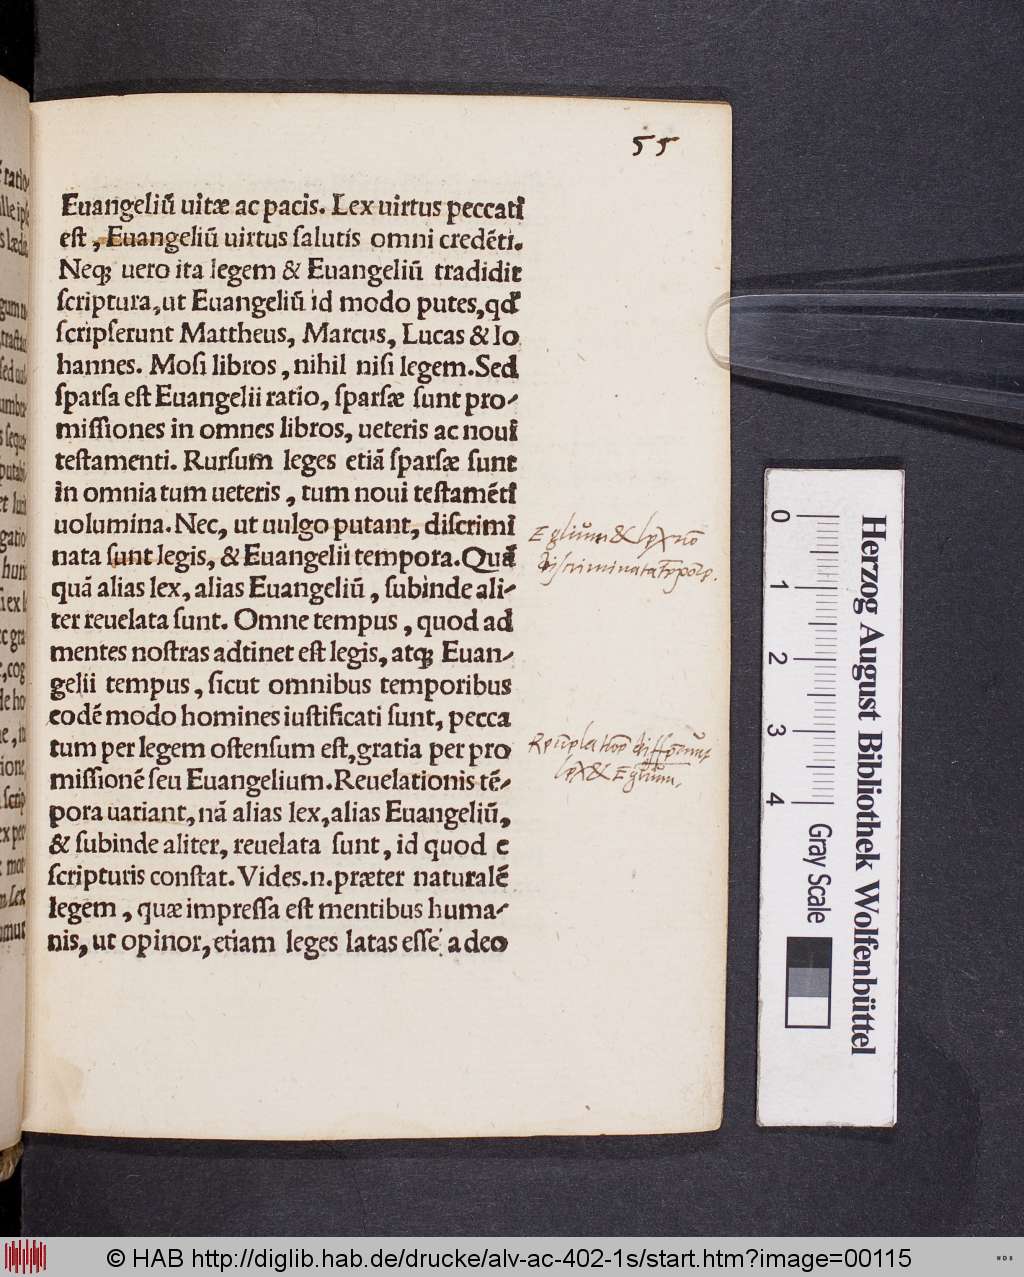 55
Euangeliũ uitæ ac pacis. Lex uirtus peccati
est, Euangeliũ uirtus salutis omni credẽti.
Neq; uero ita legem & Euangeliũ tradidit
scriptura, ut Euangeliũ id modo putes, qđ
scripserunt Mattheus, Marcus, Lucas & Io
hannes. Mosi libros, nihil nisi legem. Sed
sparsa est Euangelii ratio, sparsæ sunt pro-
missiones in omnes libros, ueteris ac noui
testamenti. Rursum leges etiã sparsæ sunt
in omnia tum ueteris, tum noui testamẽti
uolumina. Nec, ut uulgo putant, discrimi
nata sunt legis, & Euangelii tempora. Quã
quã alias lex, alias Euangeliũ, subinde ali-
ter reuelata sunt. Omne tempus, quod ad
mentes nostras adtinet est legis, atq; Euan-
gelii tempus, sicut omnibus temporibus
eodẽ modo homines iustificati sunt, pecca
tum per legem ostensum est, gratia per pro
missionẽ seu Euangelium. Reuelationis tẽ-
pora uariant, nã alias lex, alias Euangeliũ,
& subinde aliter, reuelata sunt, id quod e
scripturis constat. Vides.n.præter naturalẽ
legem, quæ impressa est mentibus huma-
nis, ut opinor, etiam leges latas esse a deo
Eglium & lex nõ
discriminata tẽpore.
Reuelatiõe differunt
lex & Eglium.
Herzog August Bibliothek Wolfenbüttel
0 1 2 3 4
Gray Scale
© HAB http://diglib.hab.de/drucke/alv-ac-402-1s/start.htm?image=00115